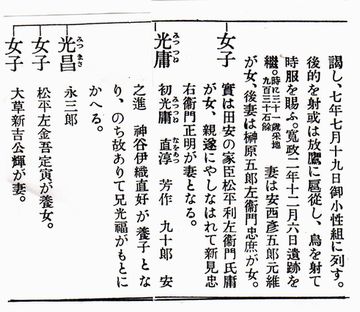 謁し、七年七月十九日御小性組に列す。
後的を射或は放鷹に扈從し、鳥を射て
時服を賜ふ。寬政二年十二月六日遺跡を
繼。時に三十一歲采地九百三十石餘 妻は安西彥五郎元維
が女、後妻は榊原五郎左衞門忠庶が女。
女子
實は田安の家臣松平利左衞門氏庸
が女、親遂にやしなはれて新見忠
右衞門正明が妻となる。
光庸 みつつね
初光庸 直淳 たかあつ 芳作 九十郎 安
之進 神谷伊織直好が養子とな
り、のち故ありて兄光福がもとに
かへる。
光昌 みつまさ
永三郎
女子
松平左金吾定寅が養女。
女子
大草新吉公輝が妻。